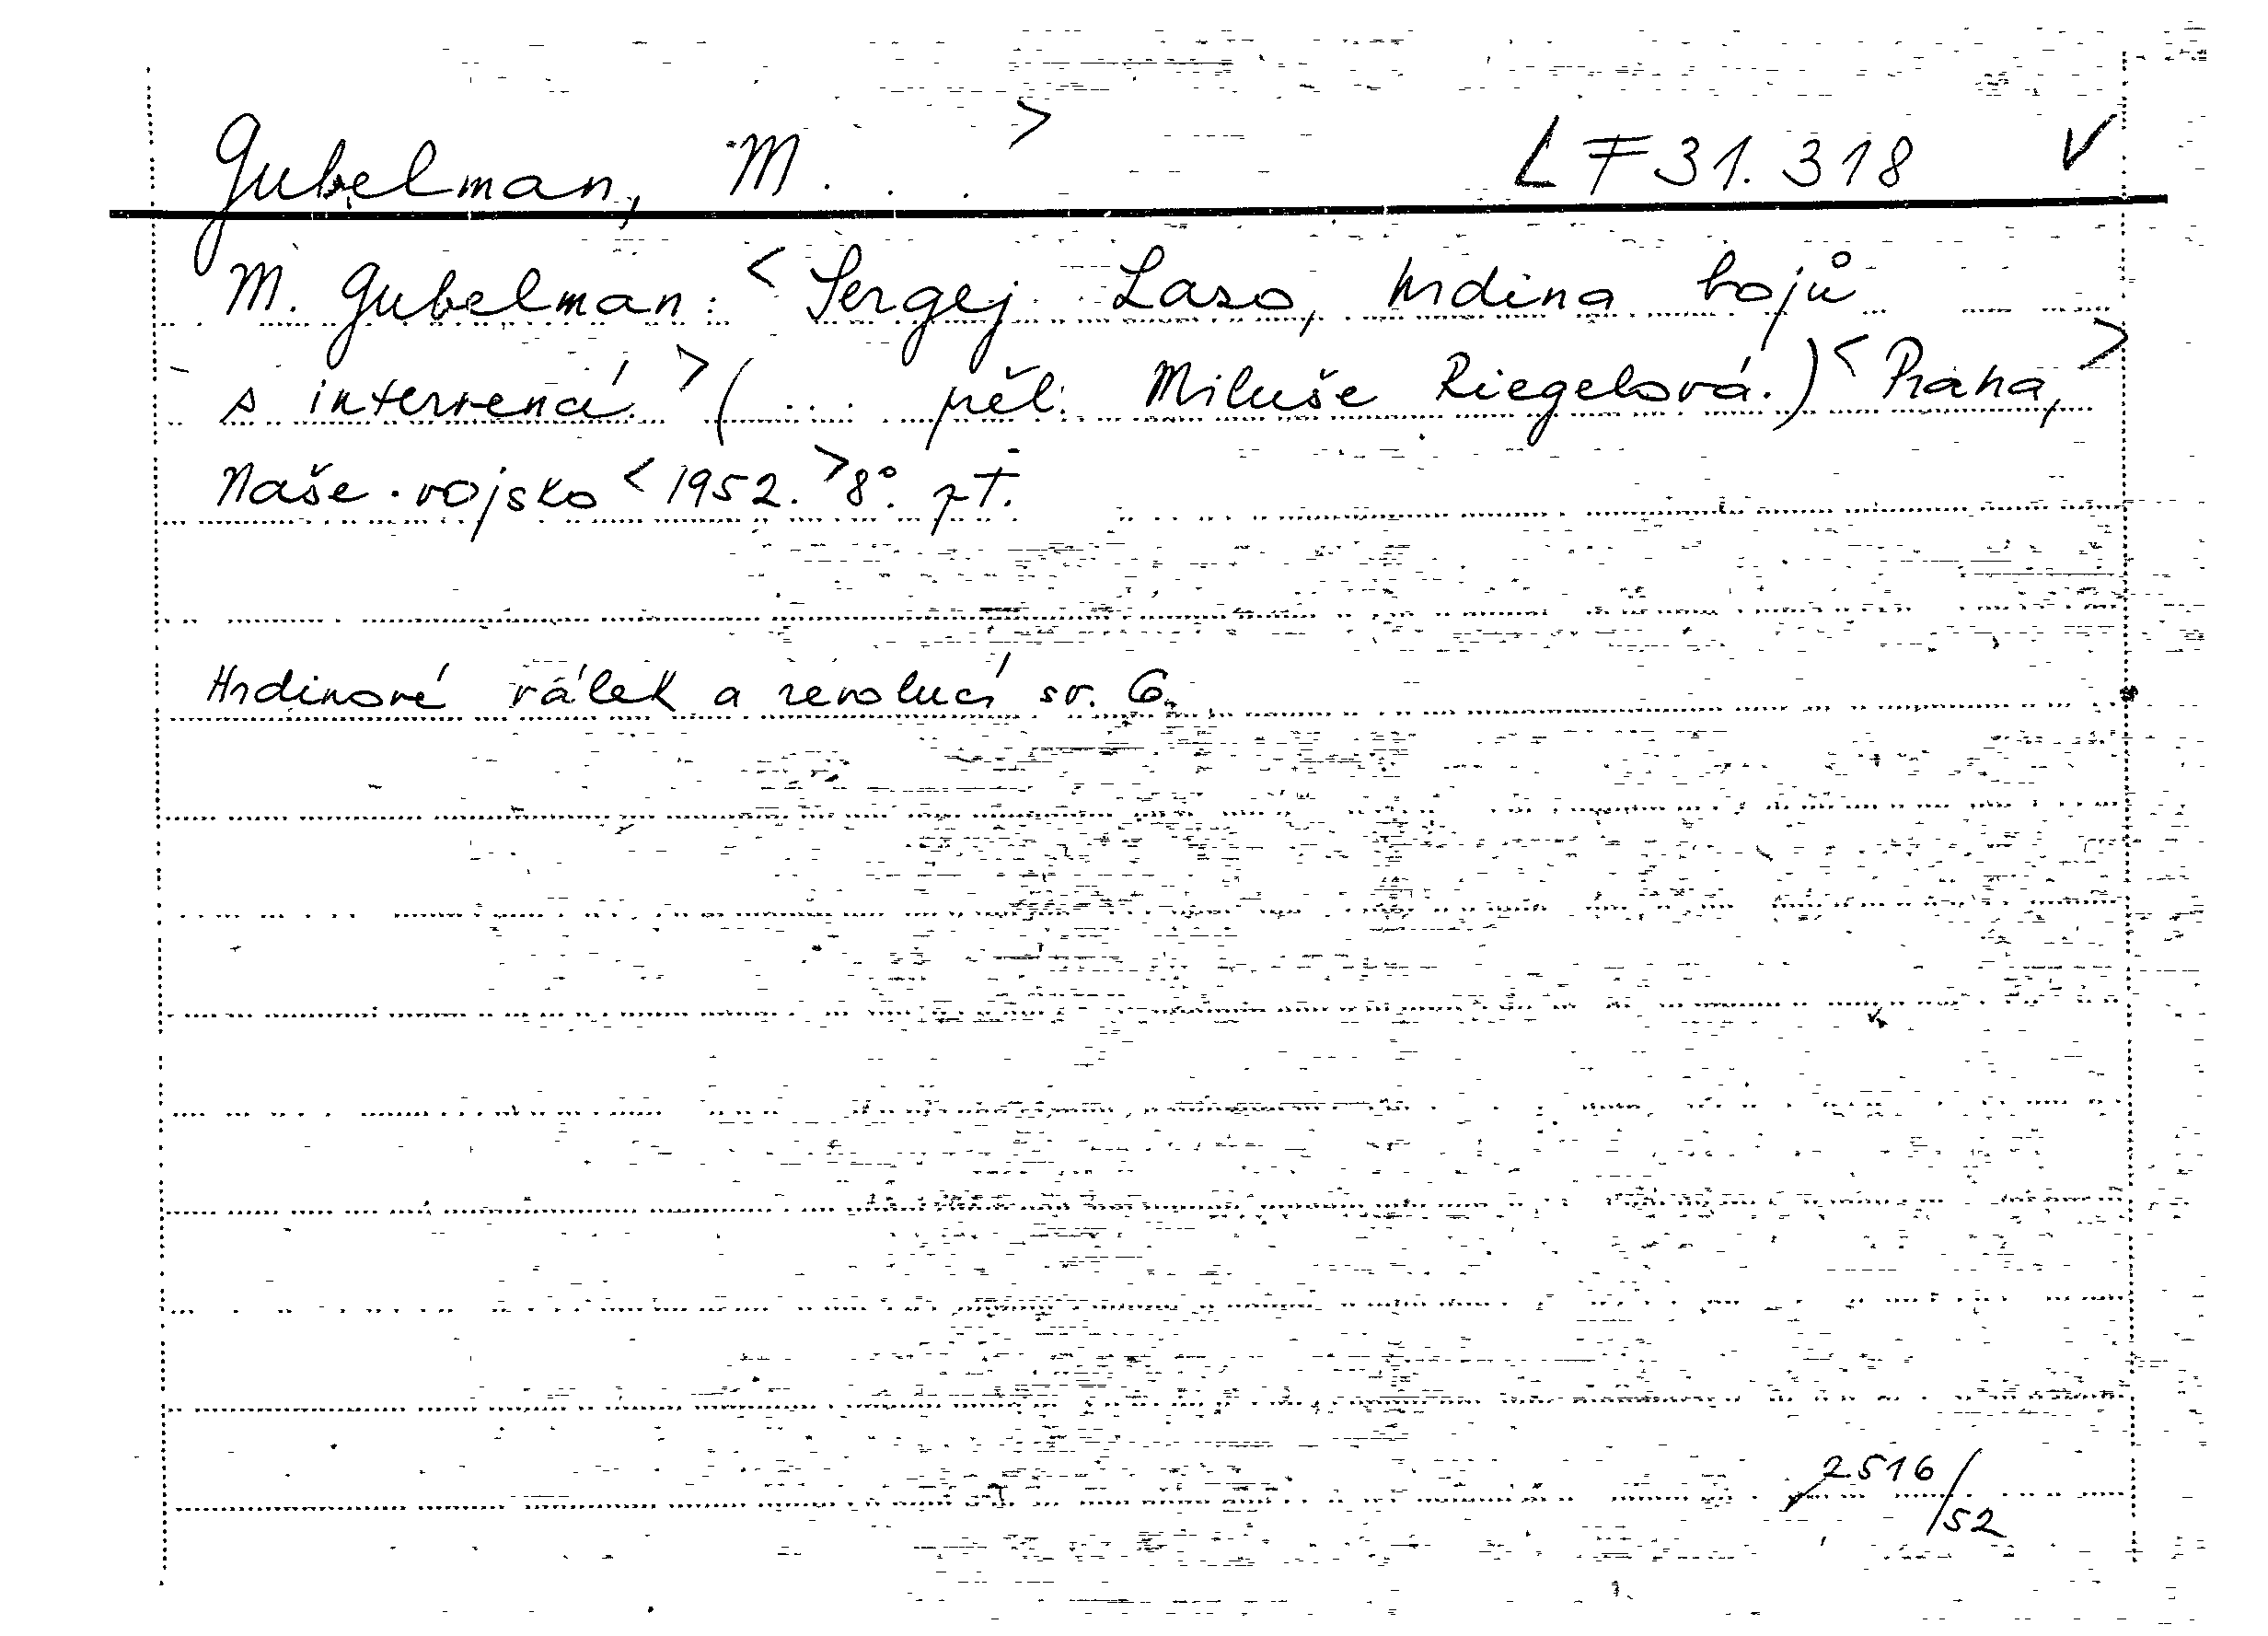 Gubelman, M. . . > LF 31.318 V
M. Gubelman: < Sergej Lazo, hrdina bojů
s intervencí. > ( ... přel. Miluše Riegelová.) < Praha, >
Naše vojsko < 1952. > 8°.
Hrdinové válek a revolucí sv. 6.
2516/52